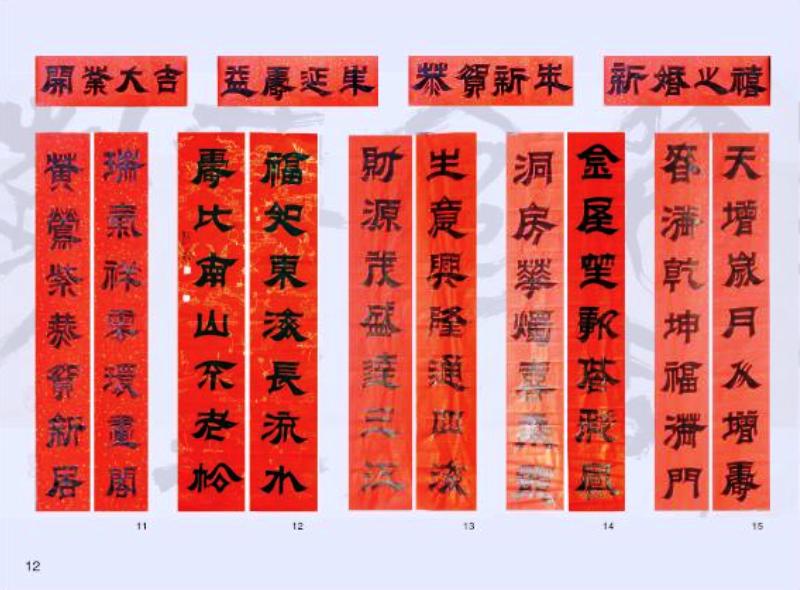 開業大吉
益壽延年
恭賀新年
新婚之禧
瑞氣祥雲環畫閣
黄鶯紫賀新居
福如東海長流水
壽比南山不老松
生意興隆通四海
財源茂盛達三江
金屋笙歌鳳
洞房華燭
天增歲月人增壽
春滿乾坤福滿門
11
12
13
14
15
12